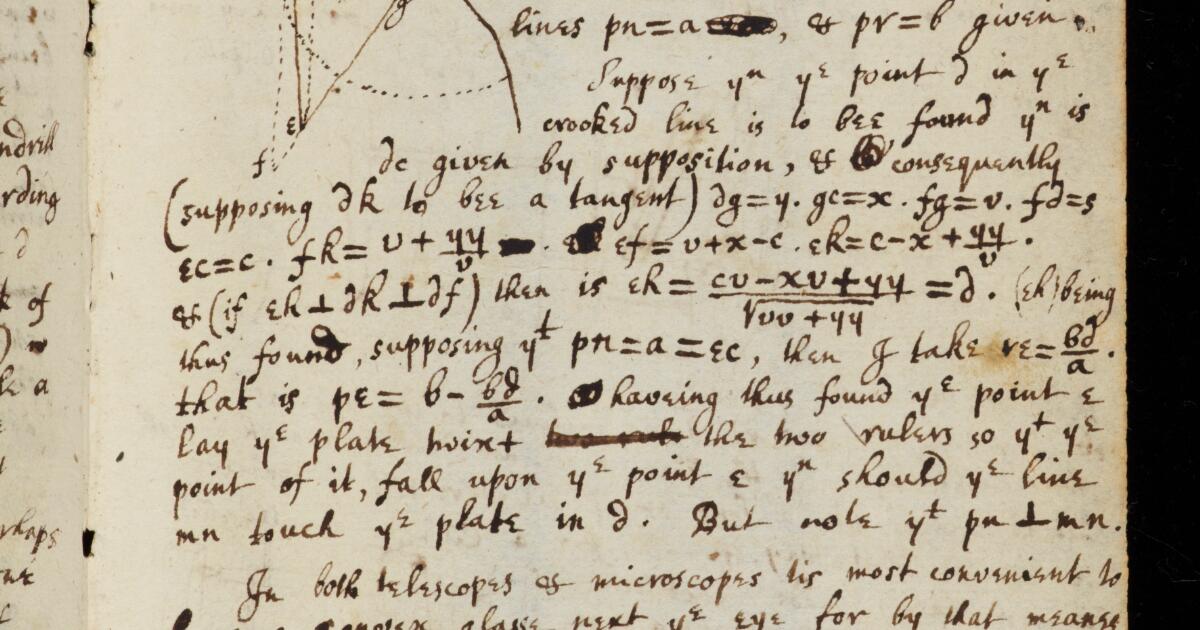 lines pn=a, & pr=b given.
Suppose yⁿ yᵉ point d in yᵉ
crooked line is to bee found yⁿ is
dc given by supposition, & consequently
(supposing dk to bee a tangent) dg=y. gc=x. fg=v. fd=s
εc=c. fk= v + yy/v. εf=v+x-c. εk=c-x+yy/v.
&(if εh⊥dk⊥df) then is εh= (cv-xv+yy)/√(vv+yy) =d. (εh) being
thus found, supposing yᵗ pn=a=εc, then I take rε=bd/a.
that is pε= b - bd/a. haveing thus found yᵉ point ε
lay yᵉ plate twixt the two rulers so yᵗ yᵉ
point of it, fall upon yᵉ point ε yⁿ should yᵉ line
mn touch yᵉ plate in d. But note yᵗ pn⊥mn.
In both telescopes & microscopes tis most convenient to
convex glasse next yᵉ eye for by that meanes
ε
f
ndrill
rding
d
k of
le a
rhaps